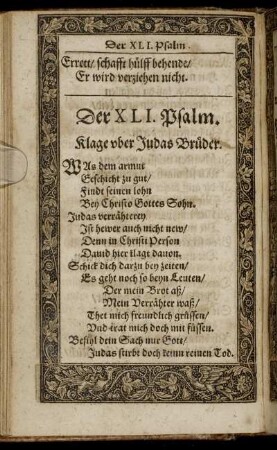 Der XLI. Psalm.
Errett/ schafft hülff behende/
Er wird verziehen nicht.
Der XLI. Psalm.
Klage vber Judas Brüder.
WAs dem armut
Geschicht zu gut/
Findt seinen lohn
Bey Christo Gottes Sohn.
Judas verrähterey
Ist hewer auch nicht new/
Denn in Christi Person
Dauid hier klagt dauon.
Schick dich darzu bey zeiten/
Es geht noch so beyn Leuten/
Der mein Brot aß/
Mein Verrähter waß/
Thet mich freundlich grüssen/
Vnd trat mich doch mit füssen.
Befihl dein Sach nur Gott/
Judas stirbt doch keinn reinen Tod.